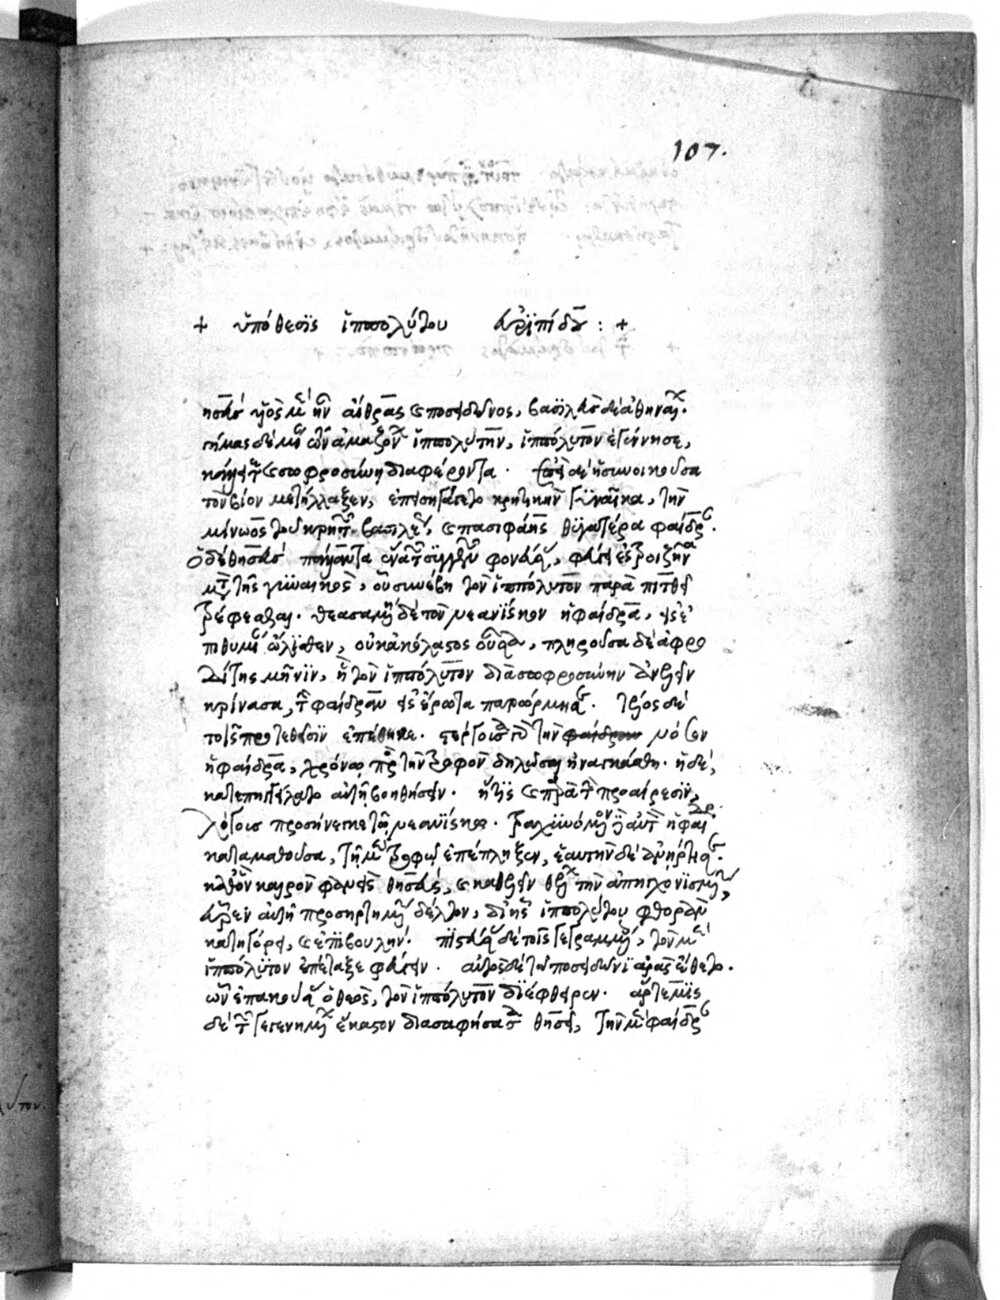 107.
+ ὑπόθεσις ἱππολύτου εὐριπίδου : +
θησεὺς υἱὸς μὲν ἦν αἴθρας καὶ ποσειδῶνος, βασιλεὺς δὲ ἀθηναίων.
γήμας δὲ μίαν τῶν ἀμαζόνων ἱππολύτην, ἱππόλυτον ἐγέννησε,
κάλλει τε καὶ σωφροσύνη διαφέροντα. ἐπεὶ δὲ ἡ συνοικοῦσα
τὸν βίον μετήλλαξεν, ἐπεισηγάγετο κρητικὴν γυναῖκα, τὴν
μίνωος τοῦ κρητῶν βασιλέως, καὶ πασιφάης θυγατέρα φαίδραν.
ὁ δὲ θησεὺς πάλλαντα ἕνα τῶν συγγενῶν φονεύσας, φεύγει εἰς τροιζῆνα
μετὰ τῆς γυναικὸς, οὗ συνέβη τὸν ἱππόλυτον παρὰ πιτθεῖ
τρέφεσθαι. θεασαμένη δὲ τὸν νεανίσκον ἡ φαίδρα, εἰς ἐ
πιθυμίαν ὤλισθεν, οὐκ ἀκόλαστος οὖσα, πληροῦσα δὲ ἀφρο
δίτης μῆνιν, ἣ τὸν ἱππόλυτον διὰ σωφροσύνην ἀνελεῖν
κρίνασα, τὴν φαίδραν εἰς ἔρωτα παρώρμησε. τέλος δὲ
τοῖς προτεθεῖσιν ἐπέθηκε. τὴν νόσον
ἡ φαίδρα, χρόνῳ πρὸς τὴν τροφὸν δηλῶσαι ἠναγκάσθη. ἡ δὲ,
κατεπηγγείλατο αὐτῇ βοηθήσειν. ἥτις καὶ παρὰ τὴν προαίρεσιν,
λόγους προσήνεγκε τῷ νεανίσκῳ. τραχυνόμενον δὲ αὐτὸν ἡ φαίδρα
καταμαθοῦσα, τῇ μὲν τροφῷ ἐπέπληξεν, ἑαυτὴν δὲ ἀνήρτησε.
καθ' ὃν καιρὸν φανεὶς θησεὺς, καὶ καθελεῖν θέλων τὴν ἀπηγχονισμένην,
εὗρεν αὐτῇ προσηρτημένην δέλτον, δι' ἧς ἱππολύτου φθορὰν
κατηγόρει, καὶ ἐπιβουλήν. πιστεύσας δὲ τοῖς γεγραμμένοις, τὸν μὲν
ἱππόλυτον ἐπέταξε φεύγειν. αὐτὸς δὲ τῷ ποσειδῶνι ἀρὰς ἔθετο.
ὧν ἐπακούσας ὁ θεὸς, τὸν ἱππόλυτον διέφθειρεν. ἄρτεμις
δὲ τῶν γεγενημένων ἕκαστον διασαφήσασα θησεῖ, τὴν μὲν φαίδραν